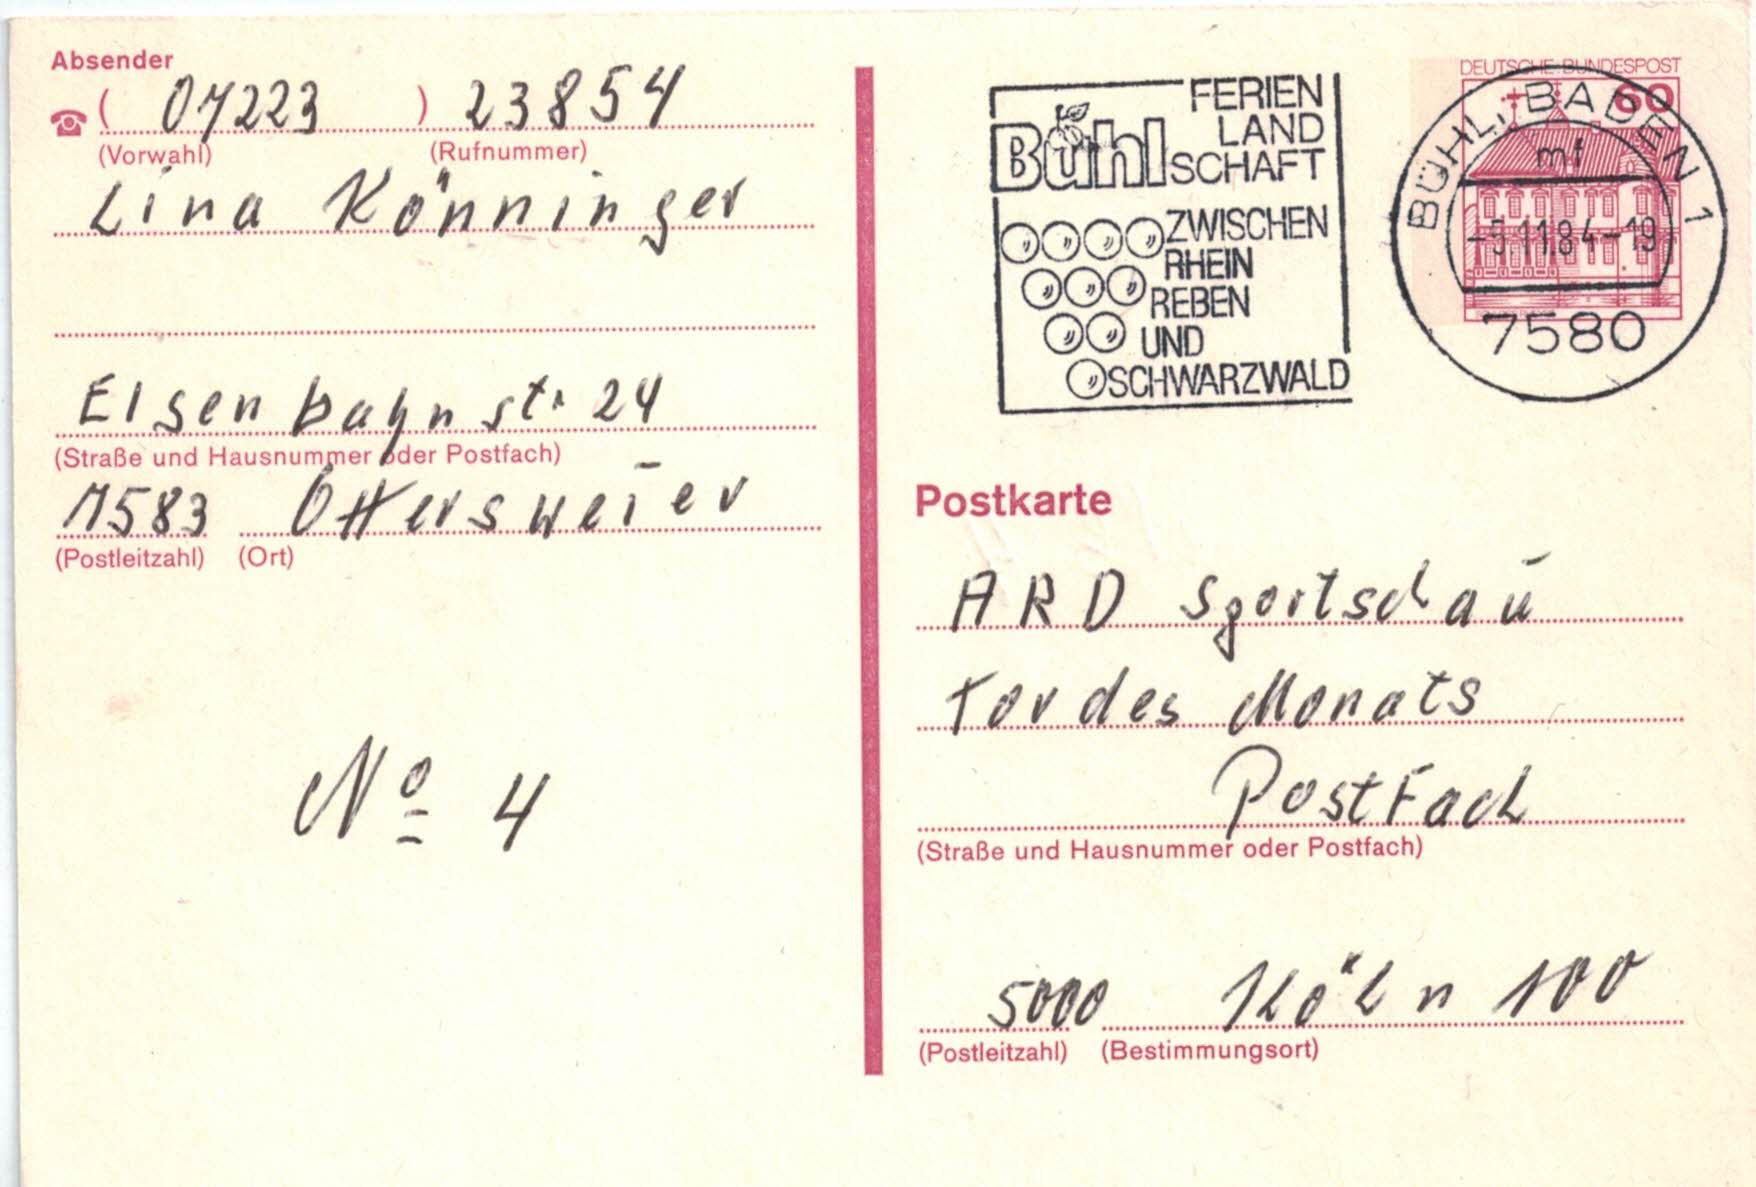 Absender
( 07223 ) 23854
(Vorwahl) (Rufnummer)
Lina Könninger
Eisenbahnstr 24
(Straße und Hausnummer oder Postfach)
7583 Ottersweier
(Postleitzahl) (Ort)
No 4
FERIEN
LAND
Bühl SCHAFT
ZWISCHEN
RHEIN
REBEN
UND
SCHWARZWALD
DEUTSCHE BUNDESPOST
60
BÜHL, BADEN 1
mf
-5.11.84-19
7580
Postkarte
ARD Sportschau
Tor des Monats
Postfach
(Straße und Hausnummer oder Postfach)
5000 Köln 100
(Postleitzahl) (Bestimmungsort)